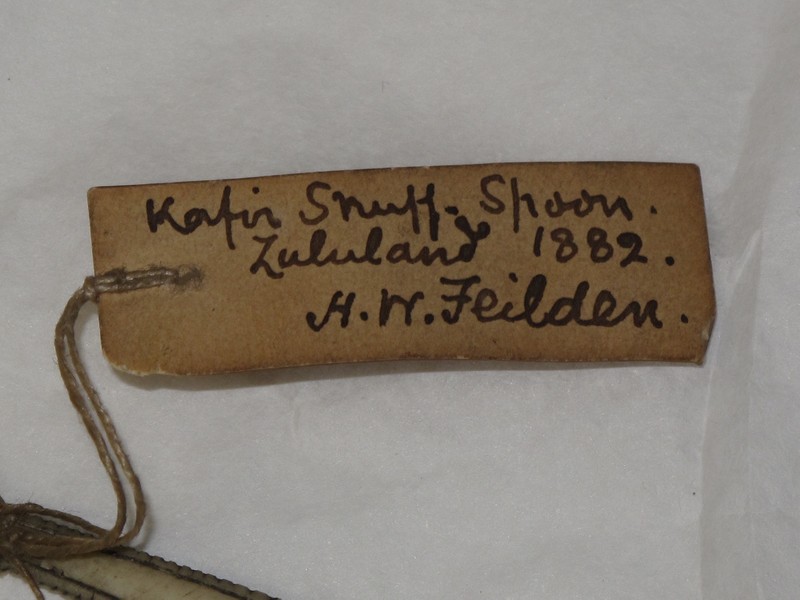 Kafir Snuff-Spoon.
Zululand 1882.
H.W. Feilden.